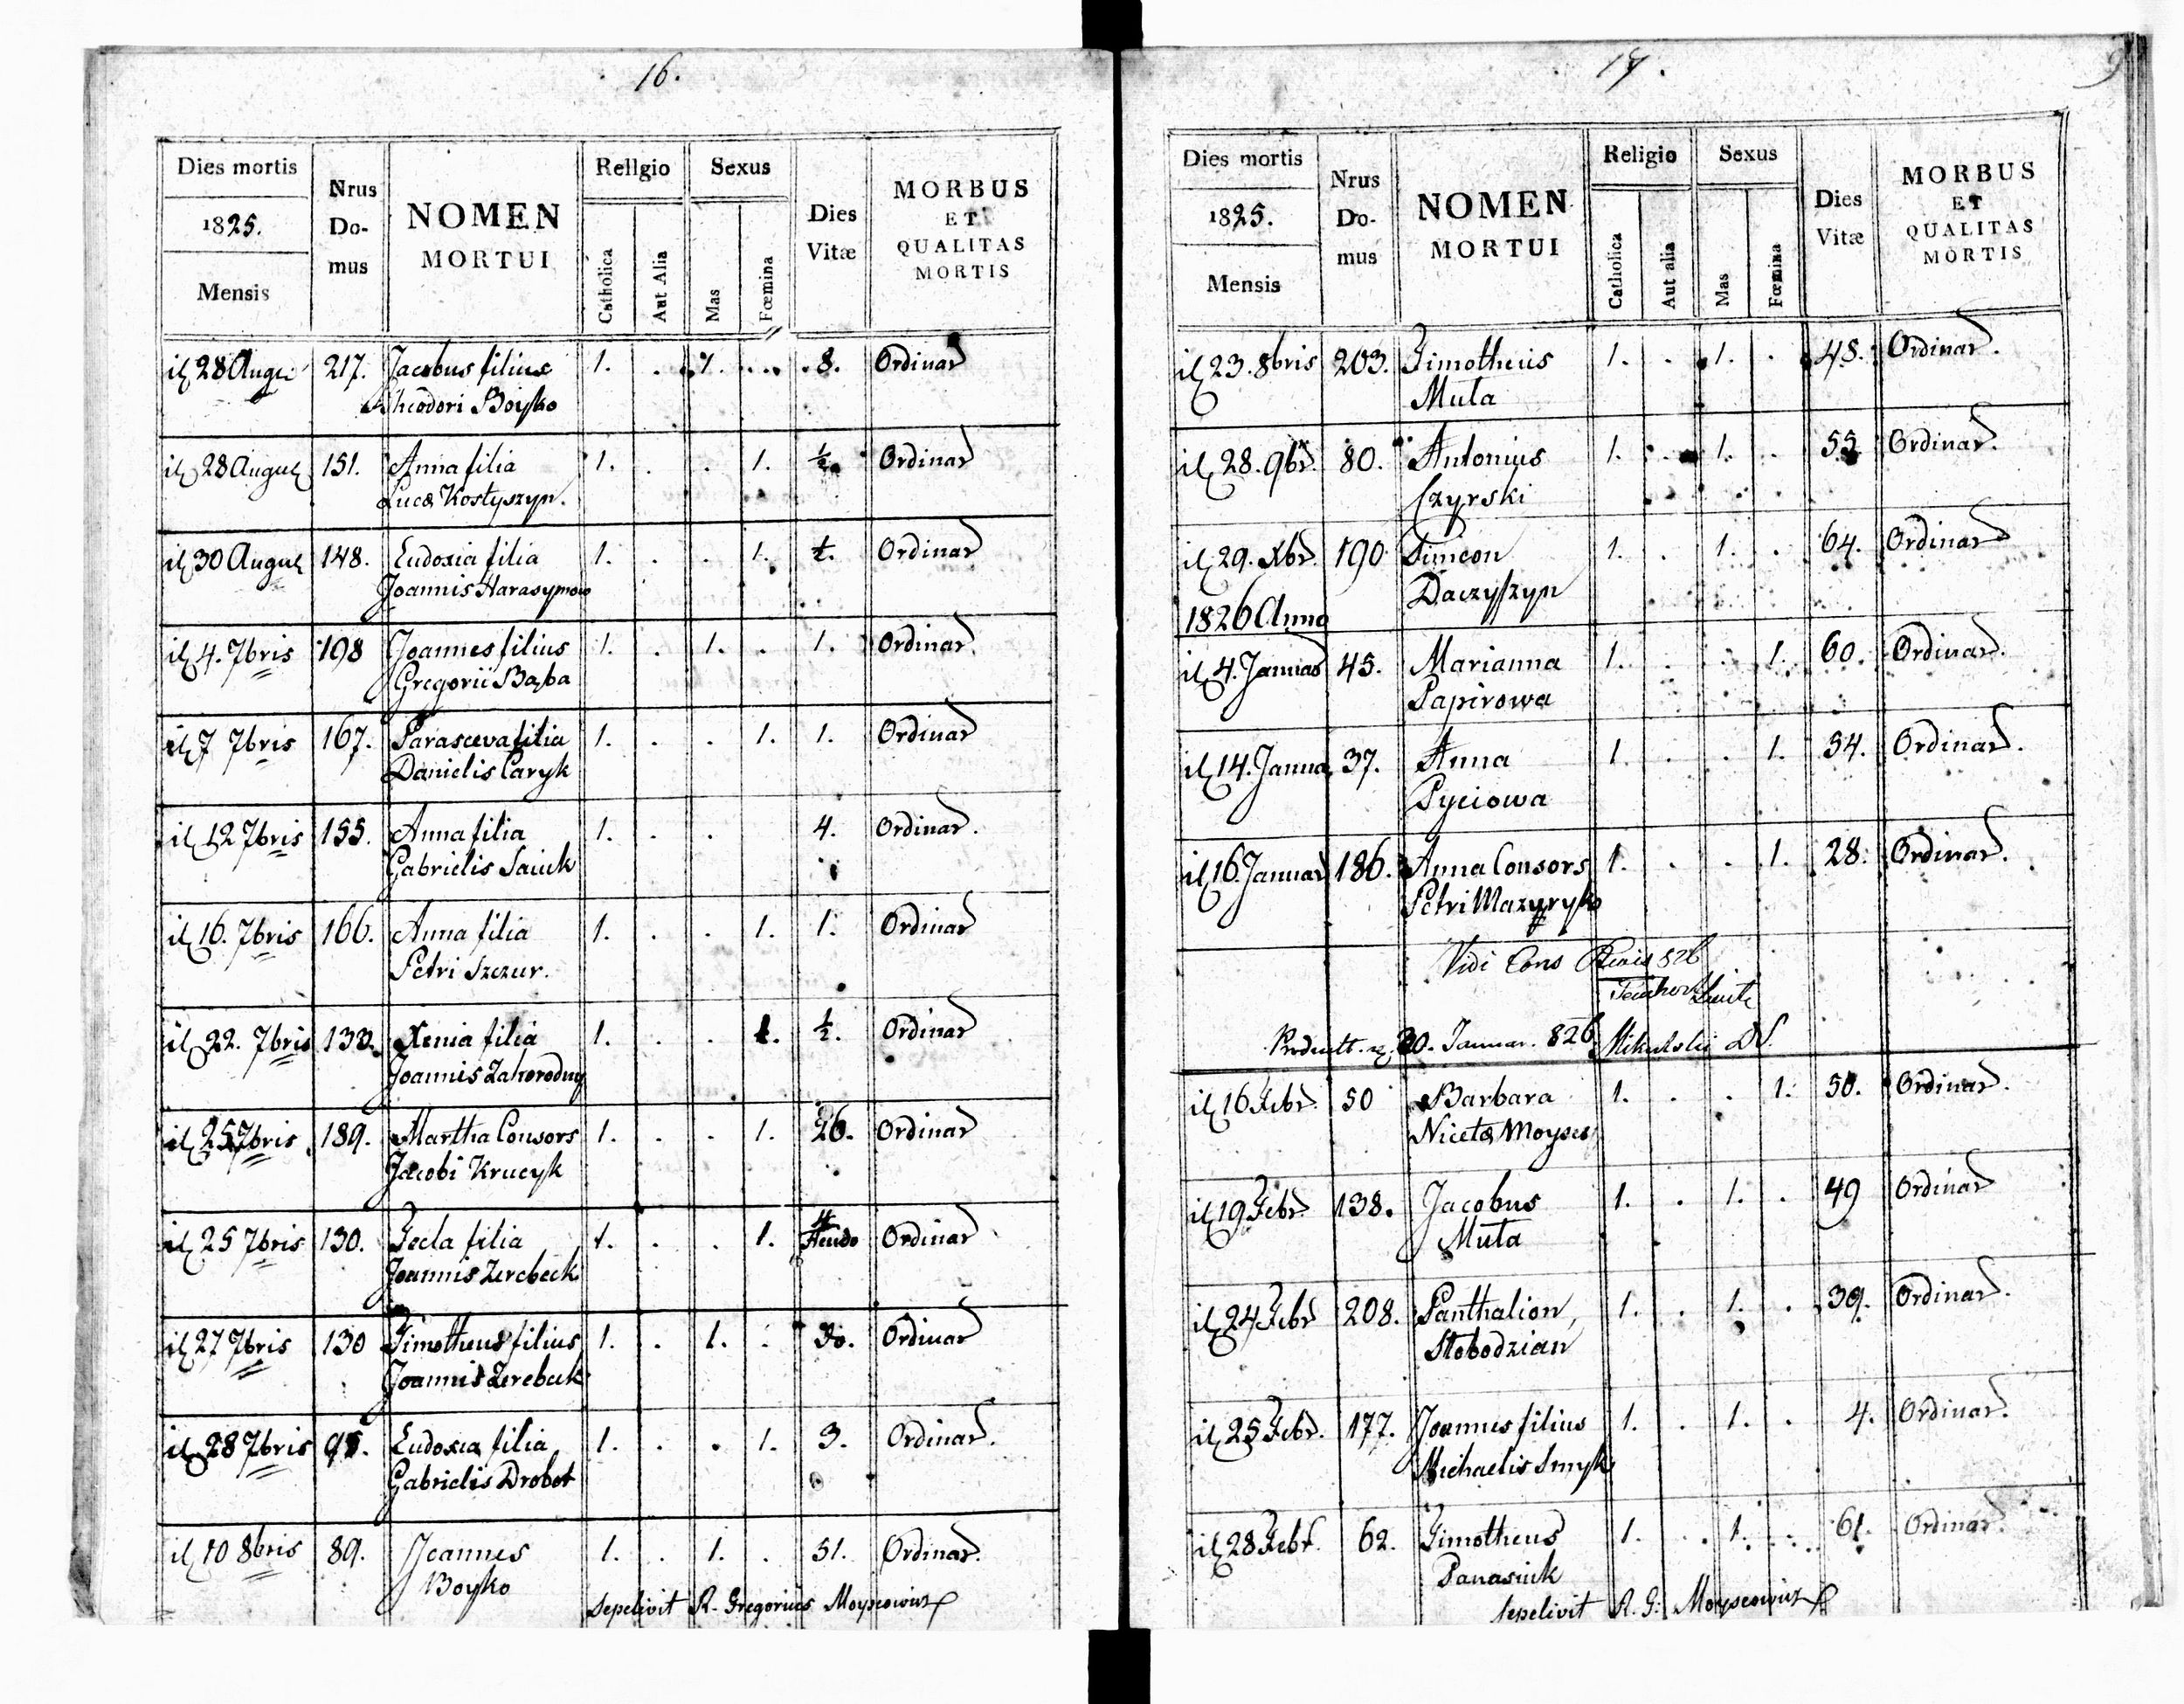 16.
Dies mortis
1825.
Mensis
Nrus
Do-
mus
NOMEN
MORTUI
Religio
Catholica
Aut Alia
Sexus
Mas
Fœmina
Dies
Vitæ
MORBUS
ET
QUALITAS
MORTIS
28 Augu 217. Jacobus filius 1. . 1. . 8. Ordinar
Theodori Boyko
28 August 151. Anna filia 1. . . 1. ½ Ordinar
Lucæ Kostyszyn.
30 August 148. Eudoxia filia 1. . . 1. Ordinar
Joannis Harasymow
4. 7bris 198 Joannes filius 1. . 1. . 1. Ordinar
Gregorii Baba
7 7bris 167. Parasceva filia 1. . . 1. 1. Ordinar
Danielis Caryk
12 7bris 155. Anna filia 1. . . 4. Ordinar.
Gabrielis Saiuk
16. 7bris 166. Anna filia 1. . . 1. 1. Ordinar
Petri Szczur.
22. 7bris 133. Xenia filia 1. . . 1. ½. Ordinar
Joannis Zahorodny
25 7bris 189. Martha Consors 1. . . 1. 26. Ordinar
Jacobi Krucyk
25 7bris 130. Tecla filia 1. . . 1. Ordinar
Joannis Zerebeck
27 7bris 130 Timotheus filius 1. . 1. . 30. Ordinar
Joannis Zerebeck
28 7bris 95. Eudoxia filia 1. . . 1. 3. Ordinar.
Gabrielis Drobot
10 8bris 89. Joannes 1. . 1. . 51. Ordinar.
Boyko
Sepelivit R. Gregorius Moyseowicz
17.
9
Dies mortis
1825.
Mensis
Nrus
Do-
mus
NOMEN
MORTUI
Religio
Catholica
Aut alia
Sexus
Mas
Fœmina
Dies
Vitæ
MORBUS
ET
QUALITAS
MORTIS
23. 8bris 203. Timotheus 1. . 1. . 48. Ordinar.
Muta
28. 9br. 80. Antonius 1. . 1. . 55 Ordinar.
Czyrski
29. Xbr. 190 Simeon 1. . 1. . 64. Ordinar
Daczyszyn
1826 Anno
4. Januar 45. Marianna 1. . . 1. 60. Ordinar.
Papirowa
14. Janua 37. Anna 1. . . 1. 54. Ordinar.
Pyciowa
16. Januar 186. Anna Consors 1. . . 1. 28. Ordinar.
Petri Mazyryk
Vidi Cons
20. Januar. 826
16 Febr. 50 Barbara 1. . . 1. 50. Ordinar.
Nicetæ Moyses
19 Febr. 138. Jacobus 1. . 1. . 49 Ordinar
Muta
24 Febr 208. Panthalion 1. . 1. . 39. Ordinar.
Slobodzian
25 Febr. 177. Joannes filius 1. . 1. . 4. Ordinar.
Michaelis Smyk
28 Febr. 62. Timotheus 1. . 1. . 61. Ordinar.
Panasiuk
Sepelivit R. G. Moyseowicz